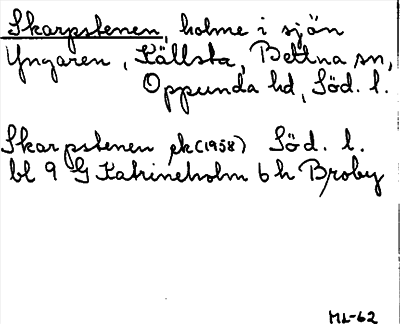 Skarpstenen, holme i sjön
Yngaren, Källsta, Bettna sn,
Oppunda hd, Söd. l.
Skarpstenen ek (1958) Söd. l.
bl 9 G Katrineholm 6 h Broby
ML-62